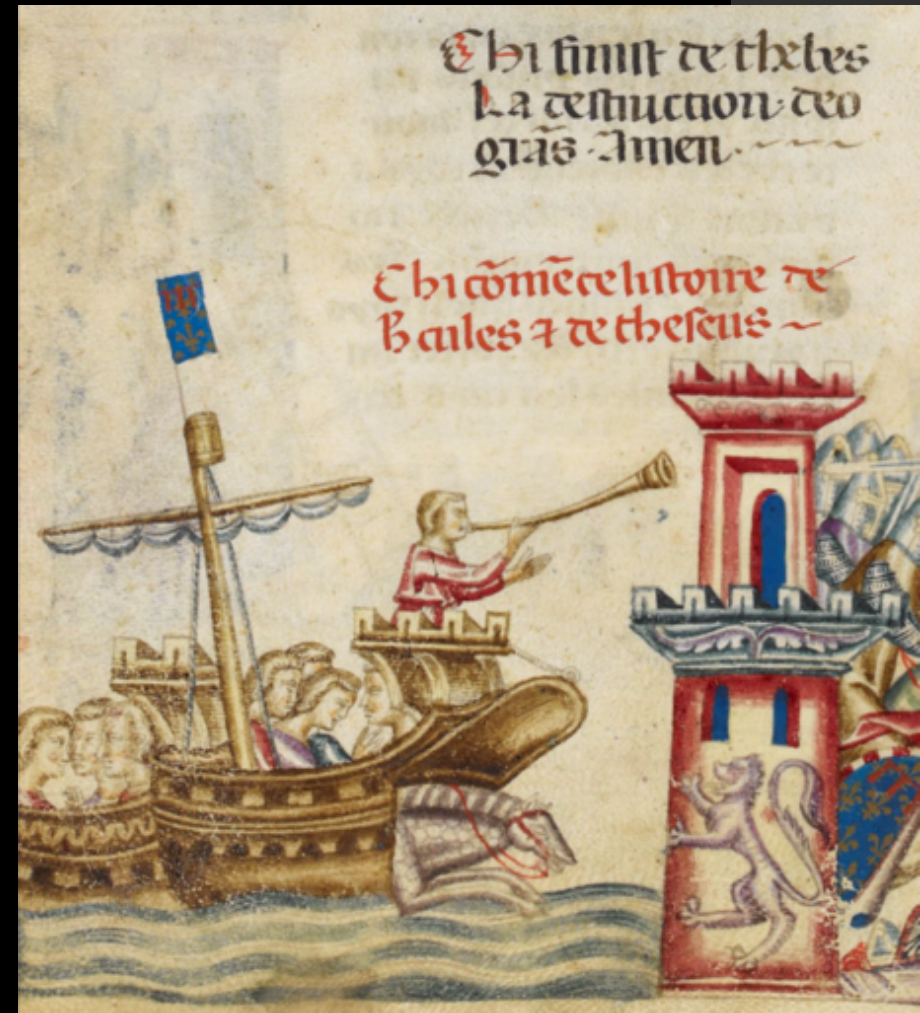 Chi finist de thebes
La destruction· deo
grãs · Amen ·
Chi cõmẽce listoire de
hcules ⁊ de theseus